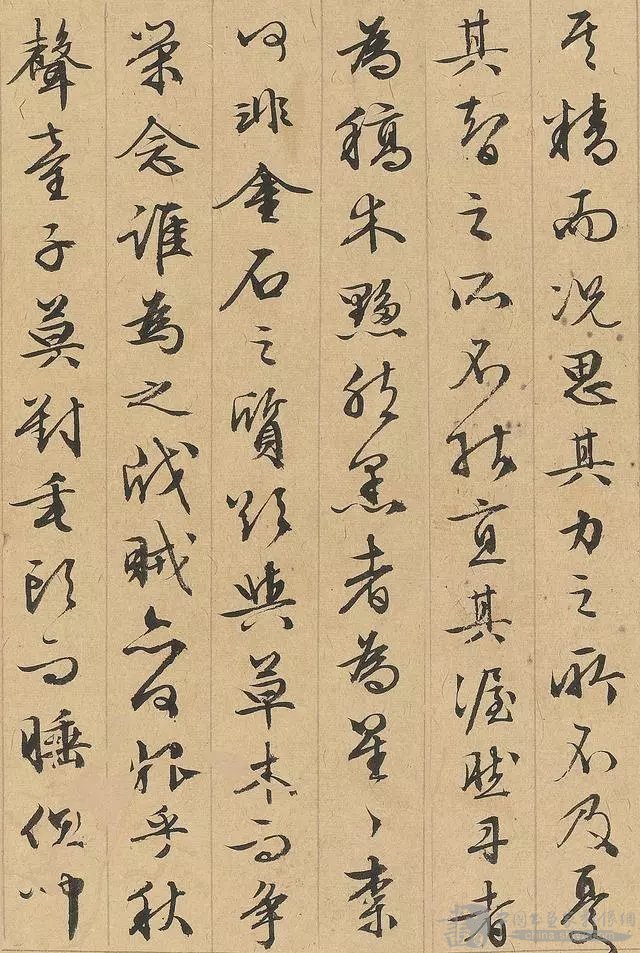 其精而況思其力之所不及憂
其智之所不能宜其渥然丹者
為稿木黟然黑者為星々柰
何非金石之質欲與草木而爭
榮念誰為之戕賊亦何恨乎秋
聲童子莫對垂頭而睡但聞